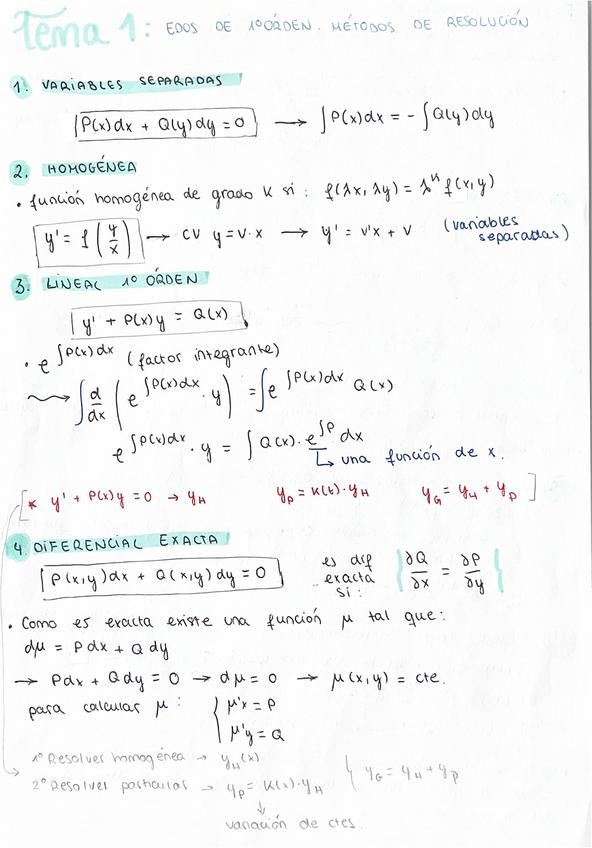 Tema 1: EDOS DE 1º ÓRDEN. MÉTODOS DE RESOLUCIÓN
1. VARIABLES SEPARADAS
P(x)dx + Q(y)dy = 0 → ∫P(x)dx = - ∫Q(y)dy
2. HOMOGÉNEA
• función homogénea de grado K si : f(λx, λy) = λᴷ f(x,y)
y' = f(y/x) → CV y = v·x → y' = v'x + v (variables separadas)
3. LINEAL 1º ÓRDEN
y' + P(x)y = Q(x)
• e^∫P(x)dx (factor integrante)
⟿ ∫ d/dx (e^∫P(x)dx · y) = ∫ e^∫P(x)dx Q(x)
e^∫P(x)dx · y = ∫ Q(x) · e^∫P dx
↳ una función de x.
[* y' + P(x)y = 0 → y_H y_P = K(t)·y_H y_G = y_H + y_P]
4. DIFERENCIAL EXACTA
P(x,y)dx + Q(x,y)dy = 0 es dif exacta si: ∂Q/∂x = ∂P/∂y
• Como es exacta existe una función μ tal que:
dμ = Pdx + Qdy
→ Pdx + Qdy = 0 → dμ = 0 → μ(x,y) = cte.
para calcular μ: { μ'x = P
μ'y = Q
1º Resolver homogénea → y_H(x)
2º Resolver particular → y_P = K(x)·y_H { y_G = y_H + y_P
↓
variación de ctes.